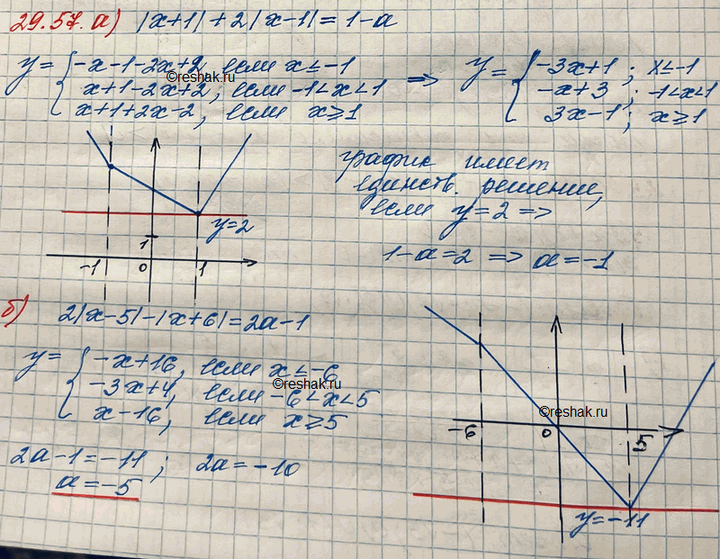 29.57. а) |x+1| + 2|x-1| = 1-a
y = { -x-1-2x+2, если x≤-1
x+1-2x+2, если -1<x<1
x+1+2x-2, если x≥1
=> y = { -3x+1 ; x≤-1
-x+3 ; -1<x<1
3x-1 ; x≥1
©reshak.ru
график имеет
единств. решении,
если y=2 =>
1-a=2 => a=-1
y=2
1
-1 0 1
б) 2|x-5|-|x+6|=2a-1
y = { -x+16, если x≤-6
-3x+4, если -6<x<5
x-16, если x≥5
©reshak.ru
2a-1=-11 ; 2a=-10
a=-5
©reshak.ru
-6 0 5
y=-11